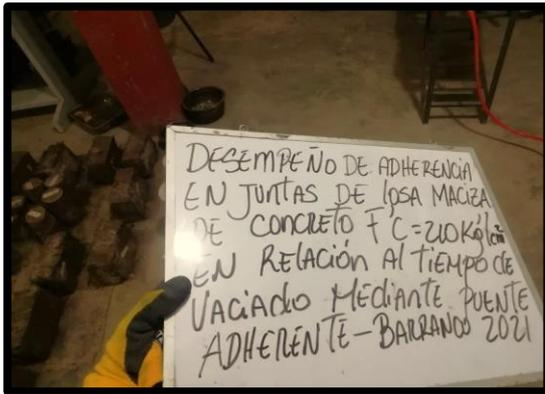 DESEMPEÑO DE ADHERENCIA
EN JUNTAS DE LOSA MACIZA
DE CONCRETO F´C=210Kg/cm²
EN RELACIÓN AL TIEMPO DE
VACIADO MEDIANTE PUENTE
ADHERENTE-BARRANCO 2021